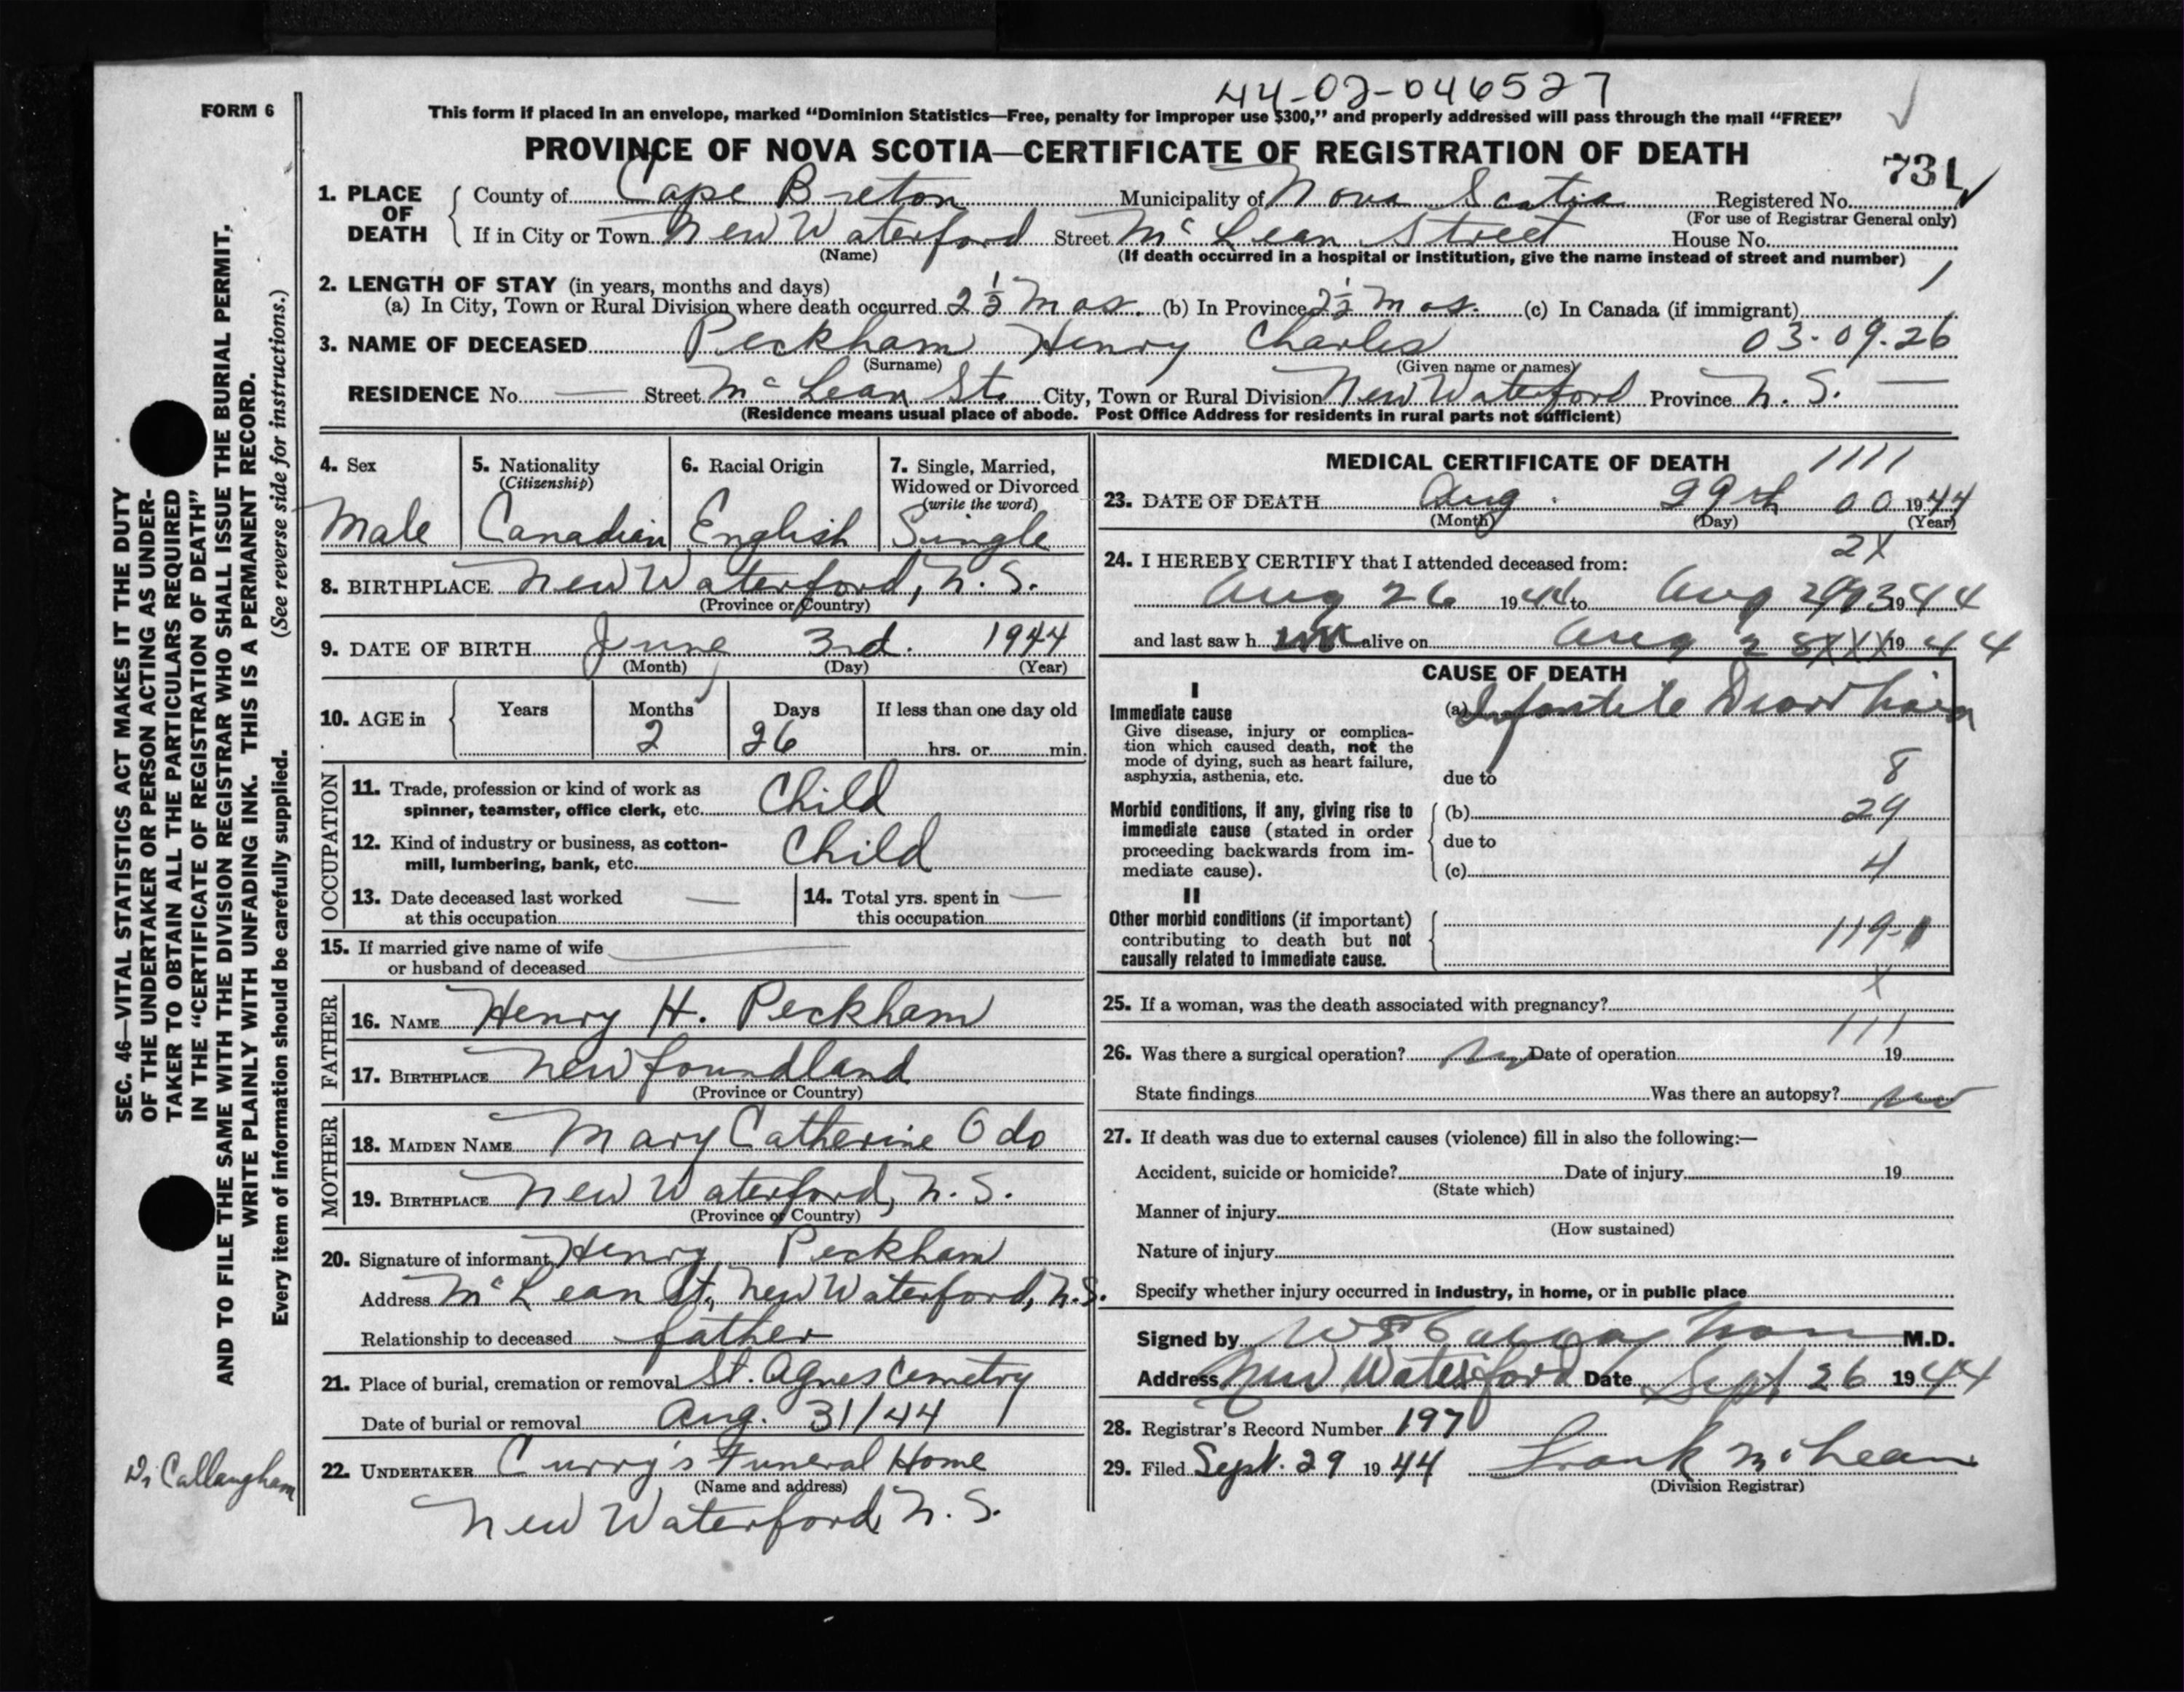 44-02-046527
FORM 6
This form if placed in an envelope, marked “Dominion Statistics—Free, penalty for improper use $300,” and properly addressed will pass through the mail “FREE”
PROVINCE OF NOVA SCOTIA—CERTIFICATE OF REGISTRATION OF DEATH
731
1. PLACE OF DEATH
County of Cape Breton Municipality of Nova Scotia Registered No.
(For use of Registrar General only)
If in City or Town New Waterford Street McLean Street House No.
(Name) (If death occurred in a hospital or institution, give the name instead of street and number)
2. LENGTH OF STAY (in years, months and days) 1
(a) In City, Town or Rural Division where death occurred 2½ Mos. (b) In Province 2½ Mos. (c) In Canada (if immigrant)
3. NAME OF DECEASED Peckham Henry Charles 03-09-26
(Surname) (Given name or names)
RESIDENCE No. — Street McLean St. City, Town or Rural Division New Waterford Province N. S. —
(Residence means usual place of abode. Post Office Address for residents in rural parts not sufficient)
4. Sex
Male
5. Nationality
(Citizenship)
Canadian
6. Racial Origin
English
7. Single, Married,
Widowed or Divorced
(write the word)
Single
8. BIRTHPLACE New Waterford, N. S.
(Province or Country)
9. DATE OF BIRTH June 3rd. 1944
(Month) (Day) (Year)
10. AGE in
Years Months Days If less than one day old
2 26 hrs. or min.
OCCUPATION
11. Trade, profession or kind of work as
spinner, teamster, office clerk, etc. Child
12. Kind of industry or business, as cotton-
mill, lumbering, bank, etc. Child
13. Date deceased last worked —
at this occupation
14. Total yrs. spent in —
this occupation
15. If married give name of wife
or husband of deceased
FATHER
16. NAME Henry H. Peckham
17. BIRTHPLACE Newfoundland
(Province or Country)
MOTHER
18. MAIDEN NAME Mary Catherine Odo
19. BIRTHPLACE New Waterford, N. S.
(Province or Country)
20. Signature of informant Henry Peckham
Address McLean St., New Waterford, N.S.
Relationship to deceased father
21. Place of burial, cremation or removal St. Agnes Cemetry
Date of burial or removal Aug. 31/44
22. UNDERTAKER Curry's Funeral Home
(Name and address)
New Waterford, N. S.
MEDICAL CERTIFICATE OF DEATH 1111
23. DATE OF DEATH Aug. 29th 00 1944
(Month) (Day) (Year)
2X
24. I HEREBY CERTIFY that I attended deceased from:
Aug 26 1944 to Aug 1944
and last saw h alive on Aug 28 XXX 1944
CAUSE OF DEATH
I
Immediate cause
Give disease, injury or complica-
tion which caused death, not the
mode of dying, such as heart failure,
asphyxia, asthenia, etc.
(a) Infantile Diarrhoea
due to 8
Morbid conditions, if any, giving rise to
immediate cause (stated in order
proceeding backwards from im-
mediate cause).
(b) 29
due to
(c) 4
II
Other morbid conditions (if important)
contributing to death but not
causally related to immediate cause.
119-1
X
25. If a woman, was the death associated with pregnancy?
111
26. Was there a surgical operation? no Date of operation 19
State findings Was there an autopsy? no
27. If death was due to external causes (violence) fill in also the following:—
Accident, suicide or homicide? Date of injury 19
(State which)
Manner of injury
(How sustained)
Nature of injury
Specify whether injury occurred in industry, in home, or in public place
Signed by M.D.
Address New Waterford Date Sept 26 1944
28. Registrar's Record Number 197
29. Filed Sept. 29 1944 Frank McLean
(Division Registrar)
SEC. 46—VITAL STATISTICS ACT MAKES IT THE DUTY
OF THE UNDERTAKER OR PERSON ACTING AS UNDER-
TAKER TO OBTAIN ALL THE PARTICULARS REQUIRED
IN THE “CERTIFICATE OF REGISTRATION OF DEATH”
AND TO FILE THE SAME WITH THE DIVISION REGISTRAR WHO SHALL ISSUE THE BURIAL PERMIT.
WRITE PLAINLY WITH UNFADING INK. THIS IS A PERMANENT RECORD.
Every item of information should be carefully supplied. (See reverse side for instructions.)
Callaugham